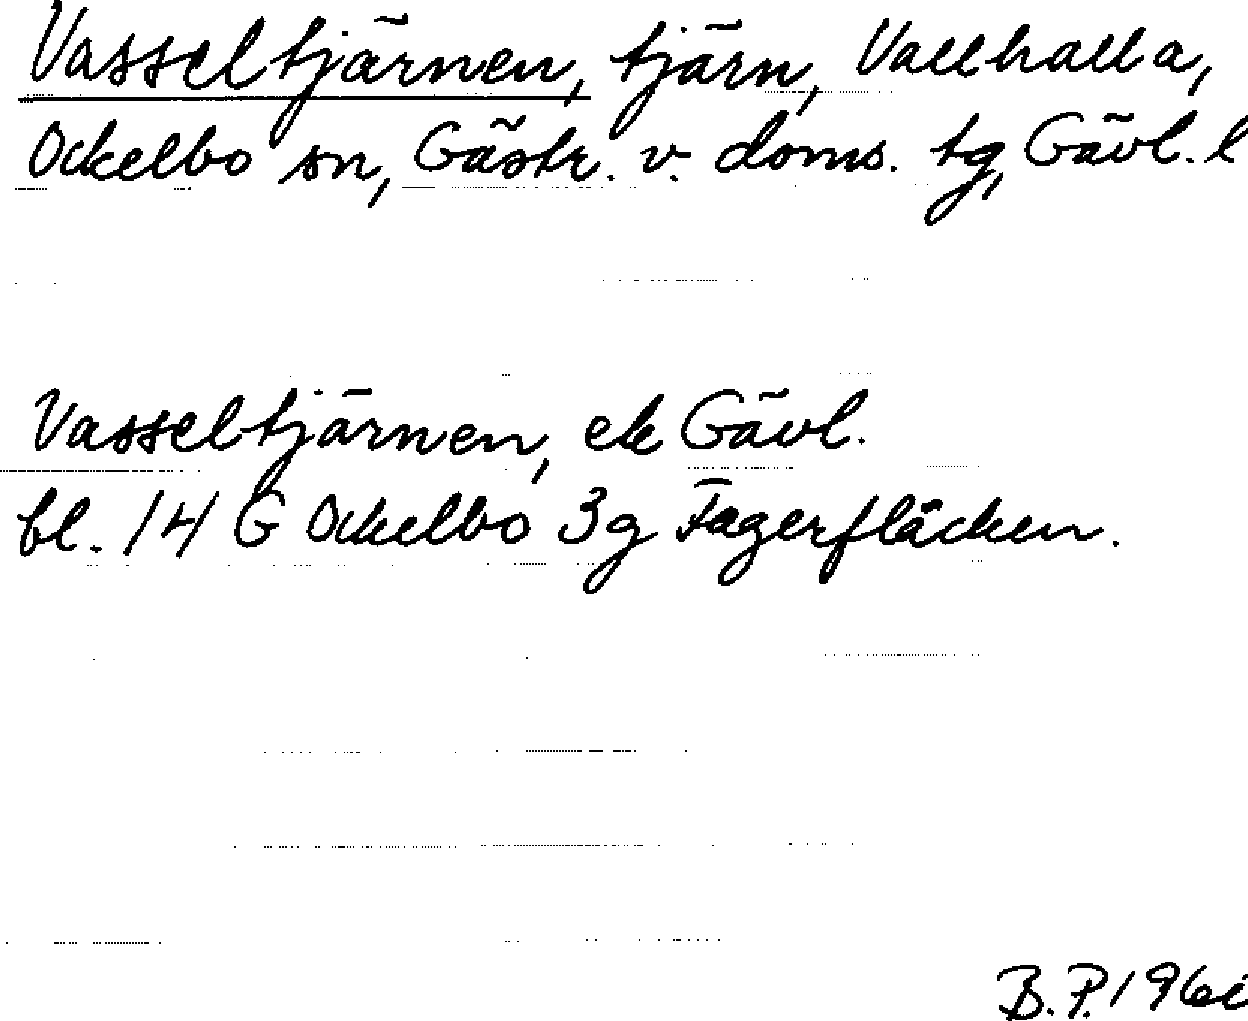 Vasseltjärnen, tjärn, Vallhalla,
Ockelbo sn, Gästr. v. doms. tg, Gävl. l
Vasseltjärnen, ek Gävl.
bl. 14 G Ockelbo 3g Fagerfläcken.
B.P.